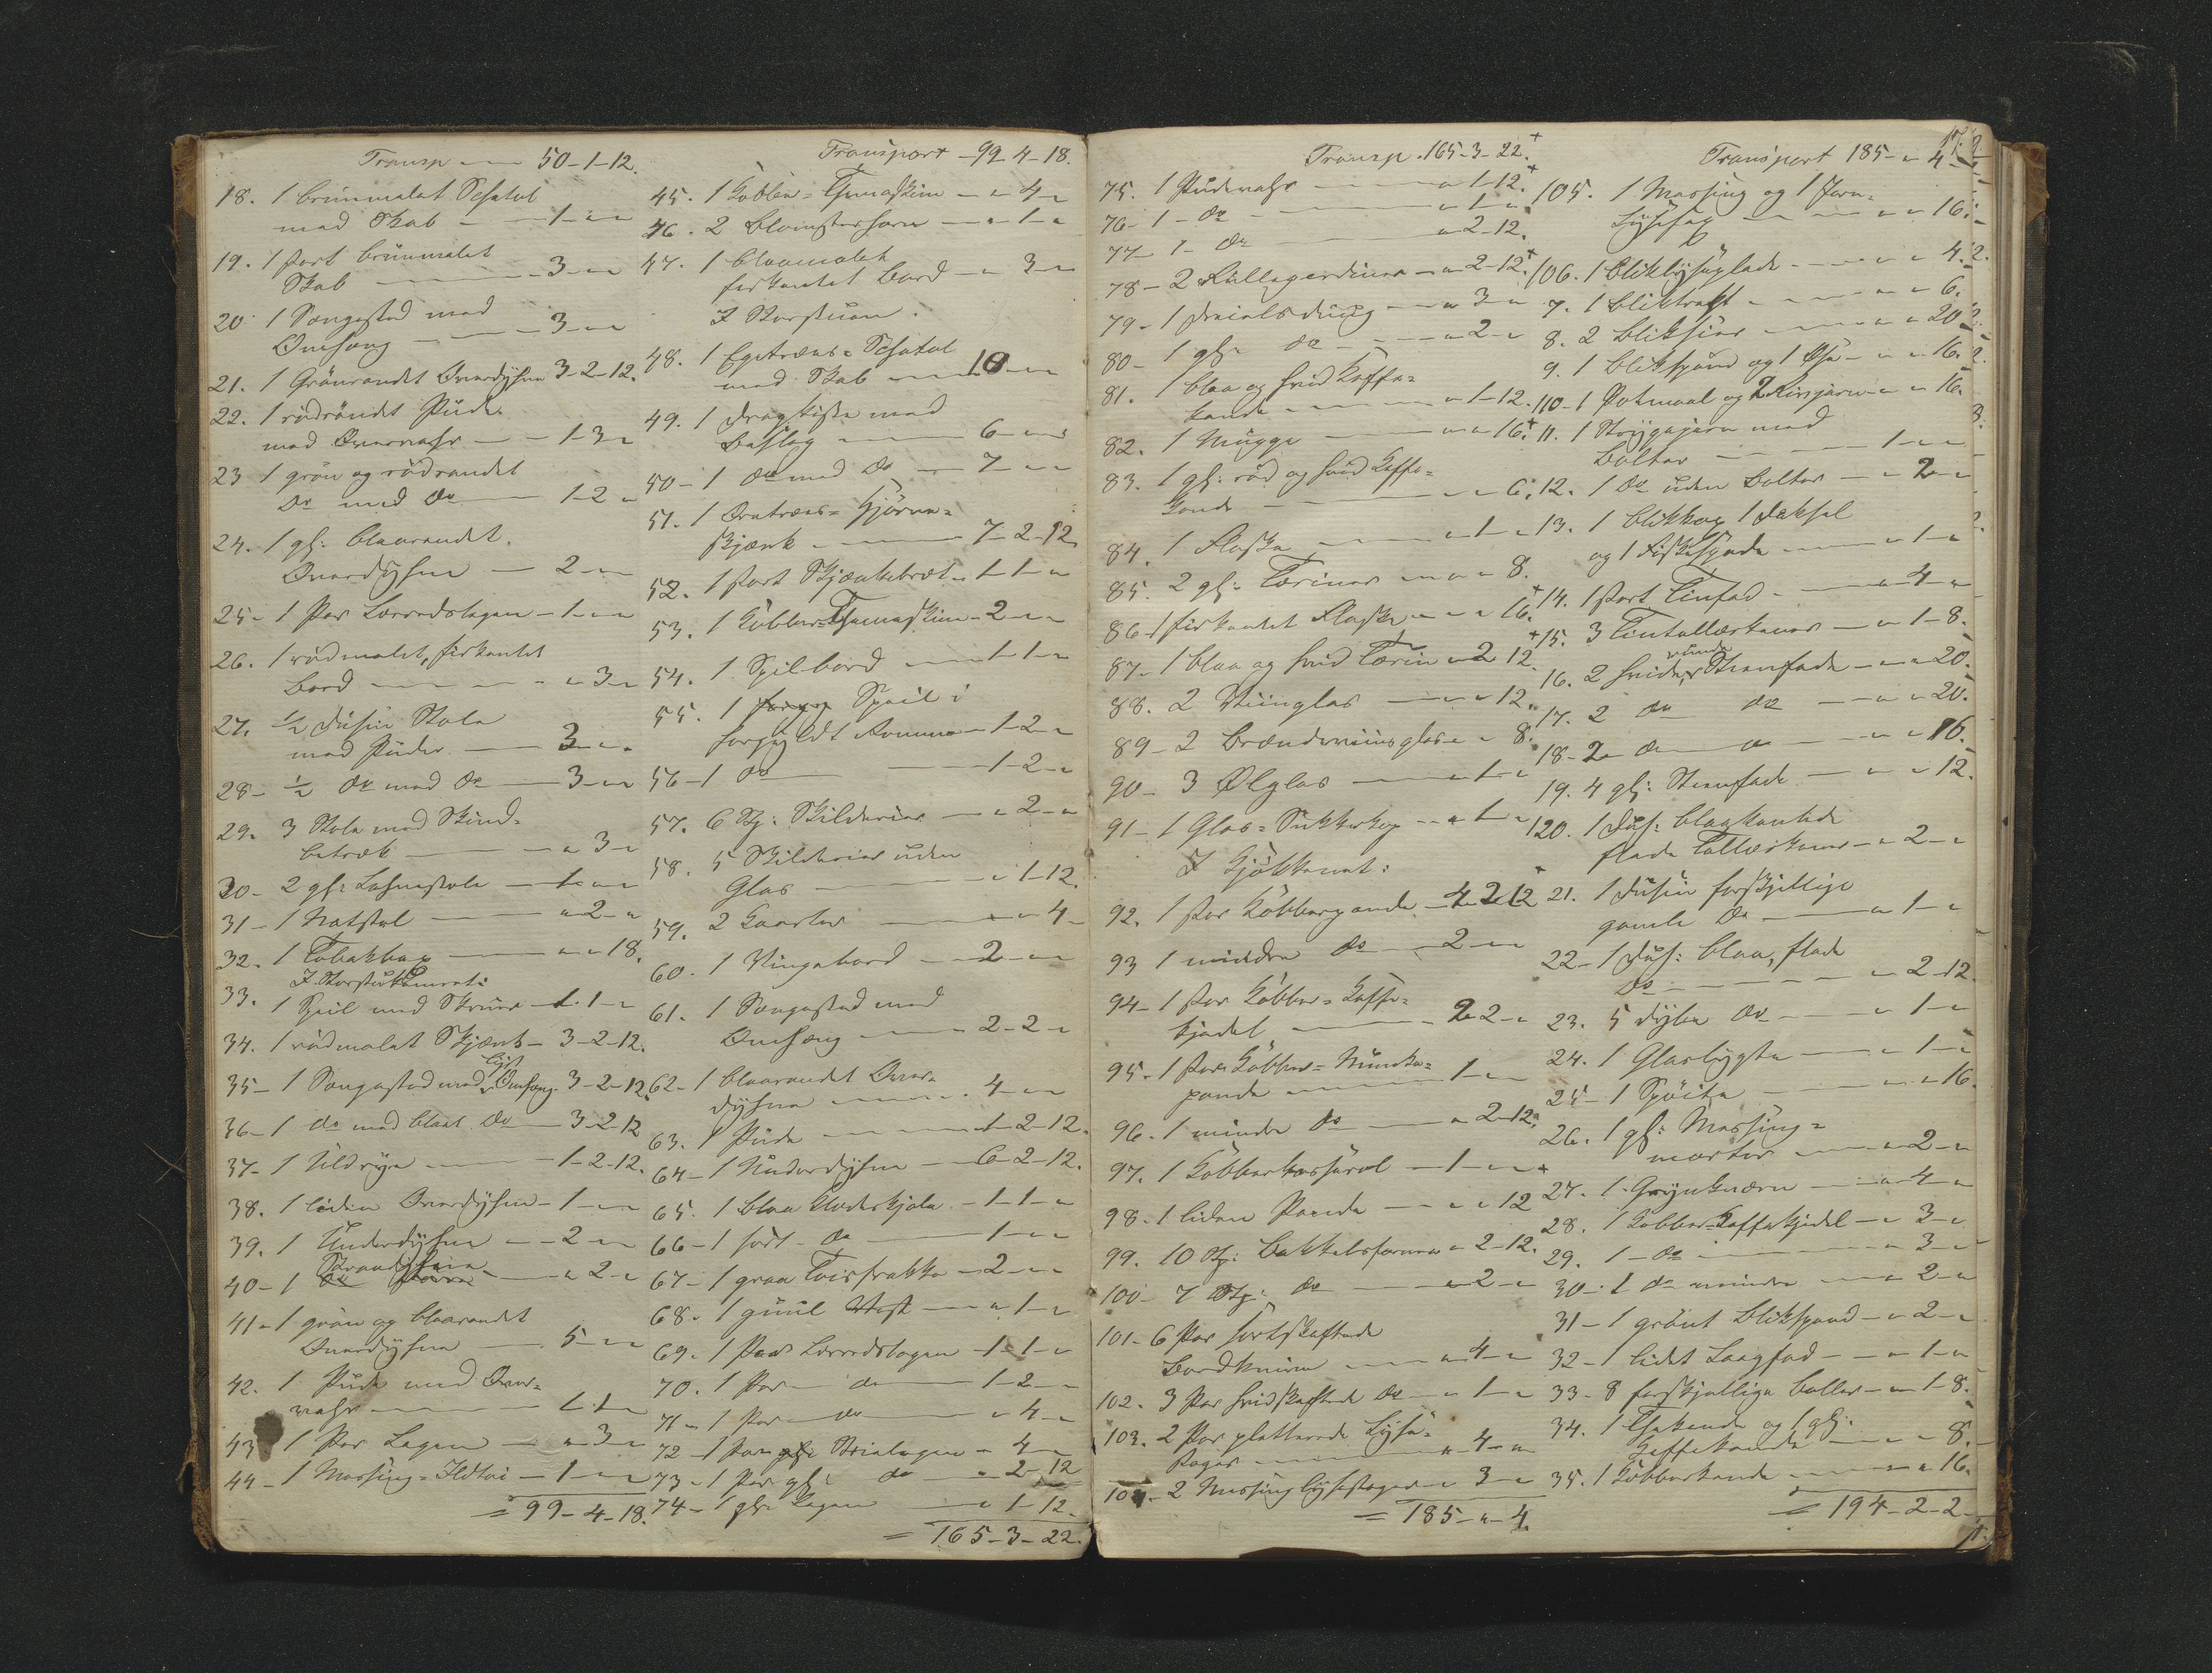 Transp — 50-1-12.
18. 1 brunmalet Schatol
med Skab — 1 - " - "
19. 1 stort brunmalet
Skab — 3 - " - "
20. 1 Sengested med
Omhæng — 3 - " - "
21. 1 Grönrandet Overdyhne 3-2-12.
22. 1 rödrandet Pude
med Overvahr — 1-3-"
23 1 grön og rödrandet
Do med Do — 1-2-"
24. 1 gl: blaarandet
Overdyhne — 2 - " - "
25- 1 Par Lærredslagen - 1 - " - "
26. 1 rödmalet, firkantet
Bord — " - 3 - "
27. ½ Dusin Stole
med Puder — 3 - " - "
28- ½ Do med Do — 3 - " - "
29. 3 Stole med Skind=
betræk — " - 3 - "
30- 2 gl: Lehnestole — 1 - " - "
31- 1 Natstol — " - 2 - "
32. 1 Tobakkop — " - " - 18.
I Storstukamret:
33. 1 Speil med Skruer - 1-1-"
34. 1 rödmalet Skjænk - 3-2-12.
35- 1 Sengested med lyst Omhæng. 3-2-12.
36- 1 do med blaat Do — 3-2-12
37- 1 Uldrye — 1-2-12.
38. 1 liden Overdyhne - 1 - " - "
39. 1 Underdyhne — 2 - " - "
40- 1 — " - 2 - "
41- 1 grön og blaarandet
Overdyhne — 5 - " - "
42. 1 Pude med Over=
vahr — 1-1-"
43 1 Par Lagen — " - 3 - "
44- 1 Messing=Ildtöi - 1 - " - "
= 99-4-18.
Transport - 99-4-18.
45. 1 Kobber=Themaskine - " - 4 - "
46. 2 Blomsterhorn — " - 1 - "
47. 1 blaamalet
firkantet Bord — " - 3 - "
I Storstuen.
48. 1 Egetræes=Schatol
med Skab — 10 - " - "
49. 1 Dragkiste med
Beslag — 6 - " - "
50- 1 Do med Do — 7 - " - "
51. 1 Oretræes=Hjörne=
skjænk — 7-2-12
52. 1 stort Skjænkebræt - 1-1-"
53. 1 Kobber=Themaskine - 2 - " - "
54. 1 Spilbord — 1-1-"
55. 1 Speil i
forgyldt Ramme - 1-2-"
56- 1 do — 1-2-"
57. 6 St: Skilderier — " - 2 - "
58. 5 Skilderier uden
Glas — " 1-12.
59. 2 — " - 4 -
60. 1 Slingebord — 2 - " - "
61. 1 Sengested med
Omhæng — 2-2-"
62- 1 blaarandet Over=
dyhne — 4 - " - "
63. 1 Pude — 1-2-12.
64- 1 Underdyhne — 6-2-12.
65. 1 blaa Klædeskjole - 1-1-"
66- 1 sort do — 1 - " - "
67- 1 graa Toisfrakke - 2 - " - "
68. 1 guul Vest — " - 1 - "
69. 1 Par Lærredslagen - 1-1-"
70. 1 Par do — 1-2-"
71- 1 Par do — " - 4 - "
72- 1 Par Strielagen - " 4 - "
73- 1 Par gl: do — " 2-12
74- 1 gl: Lagen — " 1-12.
= 165-3-22.
Transp. 165-3-22.
75. 1 Pudevahr — " 1-12.
76- 1 - do — " - 1 - "
77- 1 - do — " 2-12.
78- 2 Rullegardiner — " 2-12.
79- 1 Dreielsdug — " 3 - "
80- 1 gl: do — " - 2 - "
81. 1 blaa og hvid Kaffe=
kande — " 1-12.
82. 1 Mugge — " - " 16.
83. 1 gl: röd og hvid Kaffe=
Kande — " - " 6.
84. 1 Flaske — " - 1 - "
85. 2 gl: Terriner — " - " 8.
86- 1 firkantet Flaske — " - " 16.
87- 1 blaa og hvid Terrin - " 2 12.
88. 2 Viinglas — " - " 12.
89- 2 Brændeviinsglas - " - " 8.
90- 3 Ølglas — " - 1 - "
91- 1 Glas=Sukkerkop — " - 1 - "
I Kjökkenet:
92. 1 stor Kobberpande - 4-2-12
93 1 mindre do — 2 - " - "
94- 1 stor Kobber=Kaffe=
kjedel — 2-2-"
95- 1 stor Kobber=Munke=
pande — 1 - " - "
96. 1 mindre do — " - 2-12.
97. 1 Kobberkasserol - 1 - " - "
98. 1 liden Pande — " - " 12
99. 10 St: Bakkelsformer - " 2-12.
100- 7 St: do — " 2 - "
101- 6 Par sortskaftede
Bordknive — " - 4 - "
102. 3 Par hvidskaftede do — " - 1 - "
103. 2 Par pletterede Lyse=
stager — " 4 - "
104- 2 Messinglysestager - " 3 - "
= 185 - " - 4.
Transport 185 - " - 4 -
105. 1 Messing og 1 Jern=
Lysesax — " - " 16.
106. 1 Bliklyseplade — " - " 4.
7. 1 Bliktragt — " - " 6.
8. 2 Bliksier — " - " 20
9. 1 Blikspand og 1 Øse - " - " 16.
110- 1 Potmaal og 2 Rivjern - " - " 16.
11. 1 Strygejern med
Bolter — 1 - " - "
12. 1 do uden Bolter — " - 2 - "
13. 1 Blikkop 1 Dæksel
og 1 Fiskespade — " - 1 - "
14. 1 stort Tinfad — " - 4 - "
15. 3 Tintallerkener — " 1-8.
16. 2 hvide, runde Steenfade — " - " 20.
17. 2 do do — " - " 20.
18- 2 do do — " - " 16.
19. 4 gl: Steenfade — " - " 12.
120. 1 Dus: blaakantede
flade Tallerkener - " 2 - "
21. 1 Dusin forskjellige
gamle do — " 1 - "
22- 1 Dus: blaa, flade
do — " 2-12.
23. 5 dybe do — " 1 - "
24. 1 Glaslygte — " 1 - "
25- 1 Spöite — " - " 16.
26. 1 gl: Messing=
morter — " - 2 - "
27. 1 Grynkværn — " - 4 - "
28. 1 Kobber=Kaffekjedel - " 3 - "
29. 1 - do — " 3 - "
30- 1 do mindre — " 2 - "
31- 1 grönt Blikspand - " 2 - "
32- 1 lidet Laagfad — " - 1 - "
33- 8 forskjellige Boller - " 1-8.
34. 1 Thekande og 1 gl:
Kaffekande — " - " 8.
35. 1 Kobberkande — " - " 16.
= 194-2-2